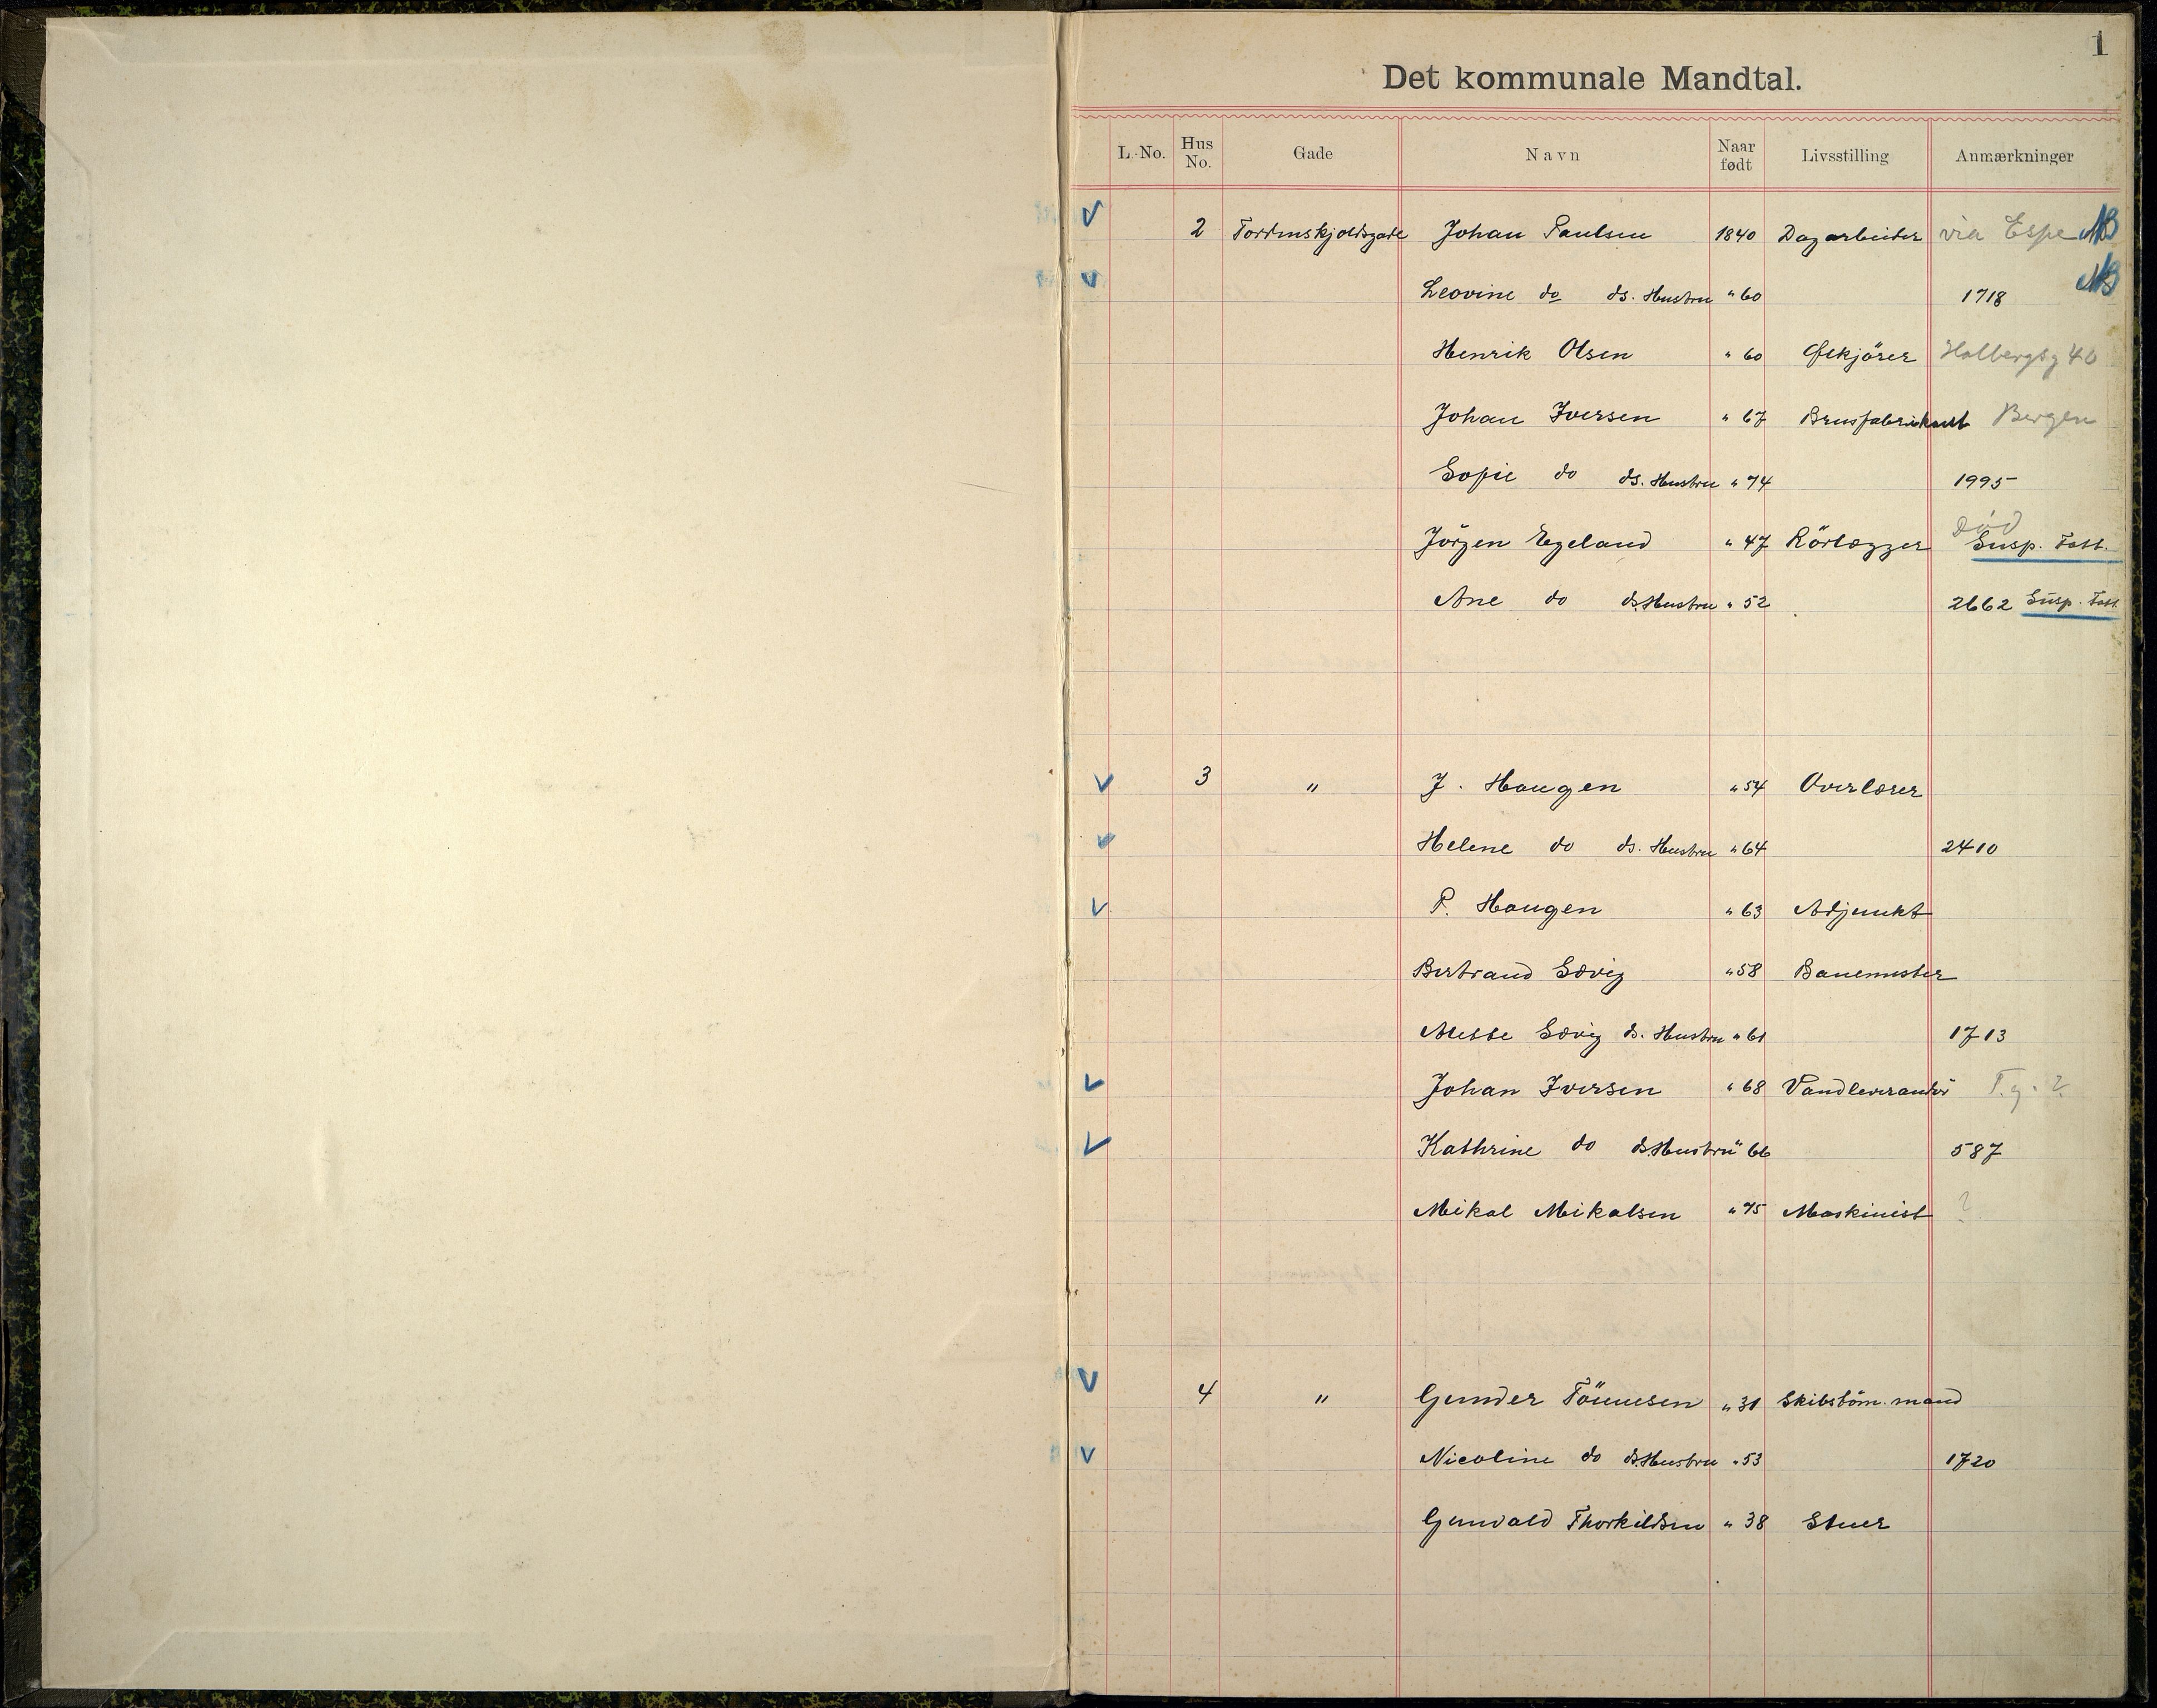 1
Det kommunale Mandtal.
L.-No. Hus No. Gade Navn Naar født Livsstilling Anmærkninger
2 Tordenskjoldsgade Johan Paulsen 1840 Dagarbeider via Espe NB
Leovine do ds. Hustru " 60 1718 NB
Henrik Olsen " 60 Holbergsg 40
Johan Iversen " 67 Brusfabrikant Bergen
Sofie do ds. Hustru " 74 1995
Jörgen Egeland " 47 Rörlægger død Susp. Fatt.
Ane do ds. Hustru " 52 2662 Susp. Fatt.
3 " J. Haugen " 54 Overlærer
Helene do ds. Hustru " 64 2410
P. Haugen " 63 Adjunkt
Bertrand Sævig " 58 Banemester
Mette Sævig ds. Hustru " 61 1713
Johan Iversen " 68 Vandleverandör T.g. 2
Kathrine do ds. Hustru " 66 587
Mikal Mikalsen " 75 Maskinist ?
4 " Gunder Tönnesen " 31 Skibstöm.mand
Nicoline do ds. Hustru " 53 1720
Gunvald Thorkildsen " 38 Stuer